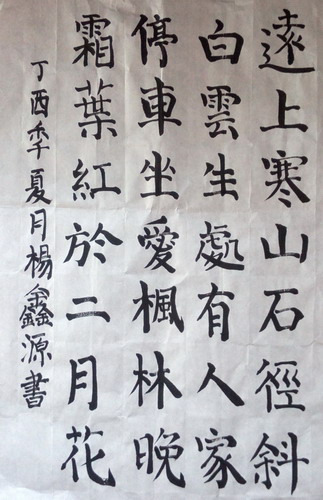 遠上寒山石徑斜
白雲生處有人家
停車坐愛楓林晚
霜葉紅於二月花
丁酉季夏月楊鑫源書